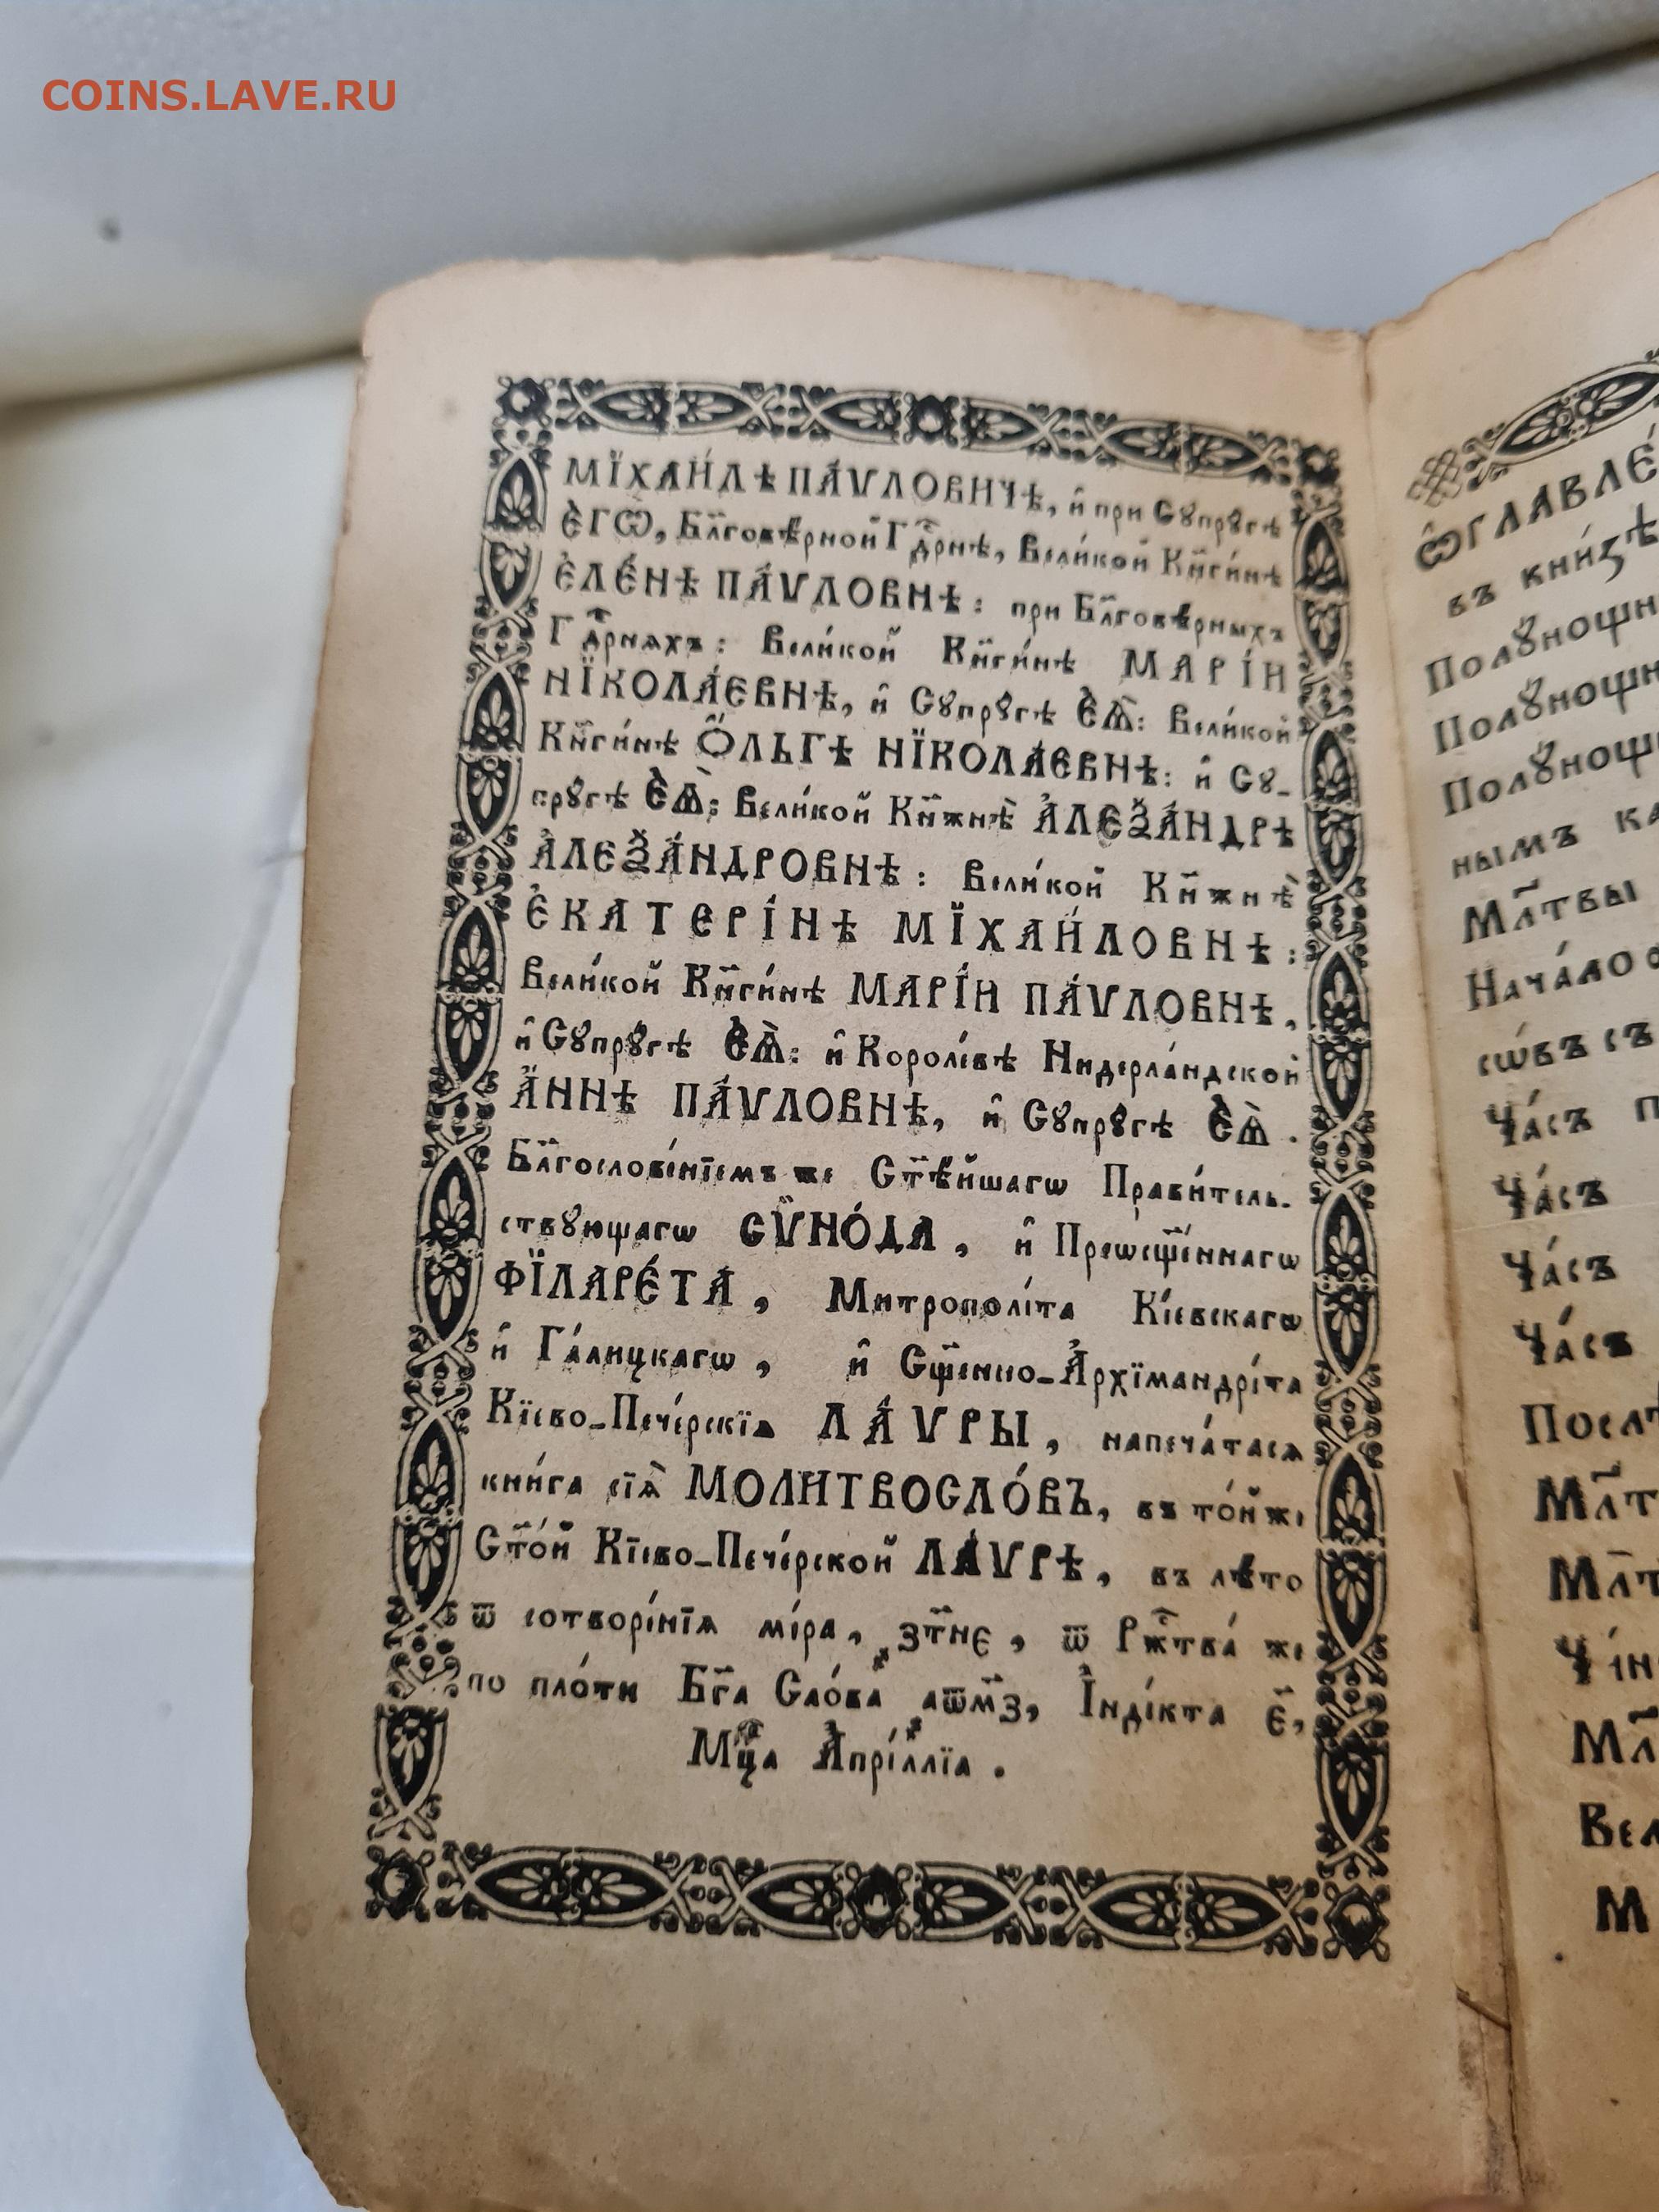 COINS.LAVE.RU
МЇХАИ́ЛѢ ПА́ѴЛОВИЧѢ, и҆ при Сꙋпрꙋ́гѣ
Є҆ГѠ̀, Бл҃говѣ́рной Гдⷭ҇рнѣ, Вели́кой Кн҃ги́нѣ
Є҆ЛЕ́НѢ ПА́ѴЛОВНѢ: при Бл҃говѣ́рныхъ
Гдⷭ҇рнѧхъ: Вели́кой Кн҃ги́нѣ МАРІ́И
НЇКОЛА́ЕВНѢ, и҆ Сꙋпрꙋ́гѣ Є҆Ѧ̀: Вели́кой
Кн҃ги́нѣ Ѻ҆́ЛЬГѢ НЇКОЛА́ЕВНѢ: и҆ Сꙋ-
прꙋ́гѣ Є҆Ѧ̀: Вели́кой Кн҃жнѣ̀ А҆ЛЕѮА́НДРѢ
А҆ЛЕѮА́НДРОВНѢ: Вели́кой Кн҃жнѣ̀
Є҆КАТЕРІ́НѢ МЇХАИ́ЛОВНѢ:
Вели́кой Кн҃ги́нѣ МАРІ́И ПА́ѴЛОВНѢ,
и҆ Сꙋпрꙋ́гѣ Є҆Ѧ̀: и҆ Короле́вѣ Нидерла́ндской
А҆́ННѢ ПА́ѴЛОВНѢ, и҆ Сꙋпрꙋ́гѣ Є҆Ѧ̀.
Бл҃гослове́нїемъ же Ст҃ѣ́йшагѡ Прави́тель-
ствꙋющагѡ СѴ̈НО́ДА, и҆ Преѡсщ҃е́ннагѡ
ФЇЛАРЕ́ТА, Митрополі́та Кі́евскагѡ
и҆ Га́лицкагѡ, и҆ Сщ҃енно-А҆рхїмандрі́та
Кїево-Пече́рскїѧ ЛА́ѴРЫ, напеча́тасѧ
кни́га сїѧ̀ МОЛИТВОСЛО́ВЪ, въ то́йже
Ст҃о́й Кїево-Пече́рской ЛА́ѴРѢ, въ лѣ́то
ѿ сотворе́нїѧ мі́ра, ҂зт҃не, ѿ Ржⷭ҇тва́ же
по пло́ти Бг҃а Сло́ва ҂аѿм҃з, І҆нді́кта є҃,
Мцⷭ҇а А҆прі́ллїа.
Ѡ҆ГЛАВЛЕ́
въ кни́зѣ
Полꙋ́нощн
Полꙋ́нощн
Полꙋ́нощн
нымъ ка
Мл҃твы
Нача́ло
сѡ́въ съ
Ча́съ п
Ча́съ
Ча́съ
Ча́съ
Посл
Мл҃т
Мл҃т
Чі́н
Мл҃
Вел
М